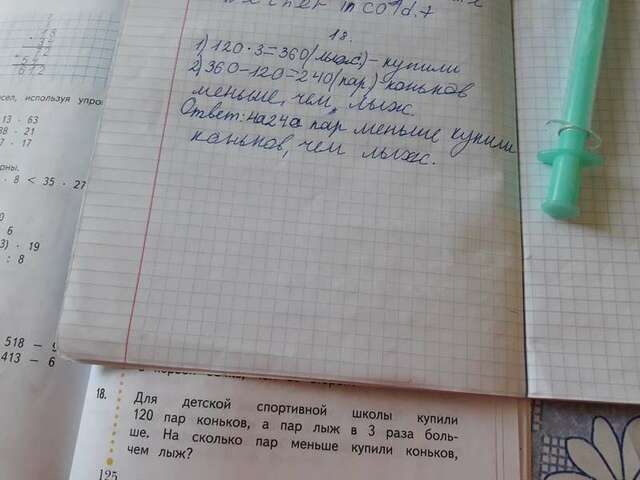 18.
1) 120 · 3 = 360 (лыж) - купили
2) 360 - 120 = 240 (пар) коньков
меньше, чем лыж.
Ответ: на 240 пар меньше купили
коньков, чем лыж.
6 1 2
сел, используя
13 · 63
38 · 21
7 · 17
· 8 < 35 · 27
6
3) · 19
: 8
518 −
413 − 6
18. Для детской спортивной школы купили
120 пар коньков, а пар лыж в 3 раза боль-
ше. На сколько пар меньше купили коньков,
чем лыж?
125